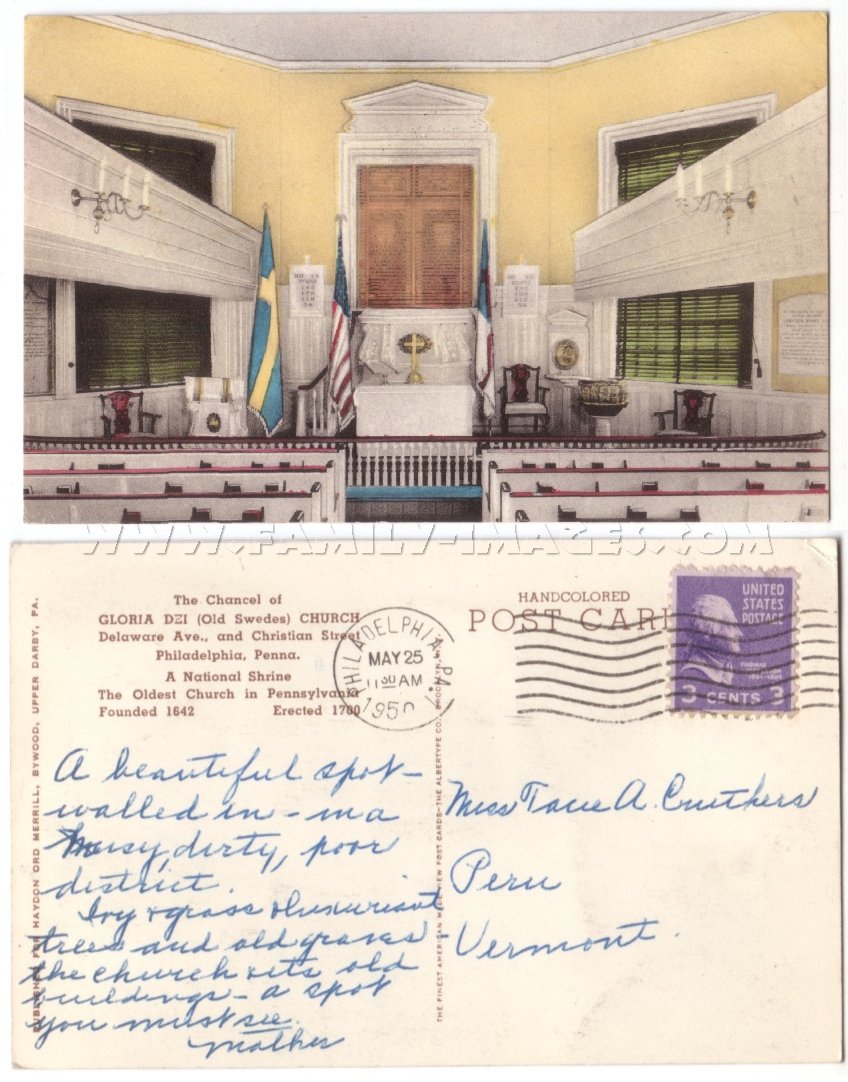 WWW.FAMILY-IMAGES.COM
The Chancel of
GLORIA DEI (Old Swedes) CHURCH
Delaware Ave., and Christian Street
Philadelphia, Penna.
A National Shrine
The Oldest Church in Pennsylvania
Founded 1642 Erected 1700
PHILADELPHIA, PA.
MAY 25
11 30 AM
1950
HANDCOLORED
POST CARD
UNITED
STATES
POSTAGE
THOMAS
3 CENTS 3
PUBLISHED FOR HAYDON ORD MERRILL, BYWOOD, UPPER DARBY, PA.
THE FINEST AMERICAN MADE VIEW POST CARDS—THE ALBERTYPE CO., BROOKLYN, N.Y.
A beautiful spot –
walled in – in a
Noisy, dirty, poor
district.
Ivy & grass & luxuriant
trees and old graves –
the church & its old
buildings – a spot
you must see.
Mother
Miss A. Cruthers
Peru
Vermont.